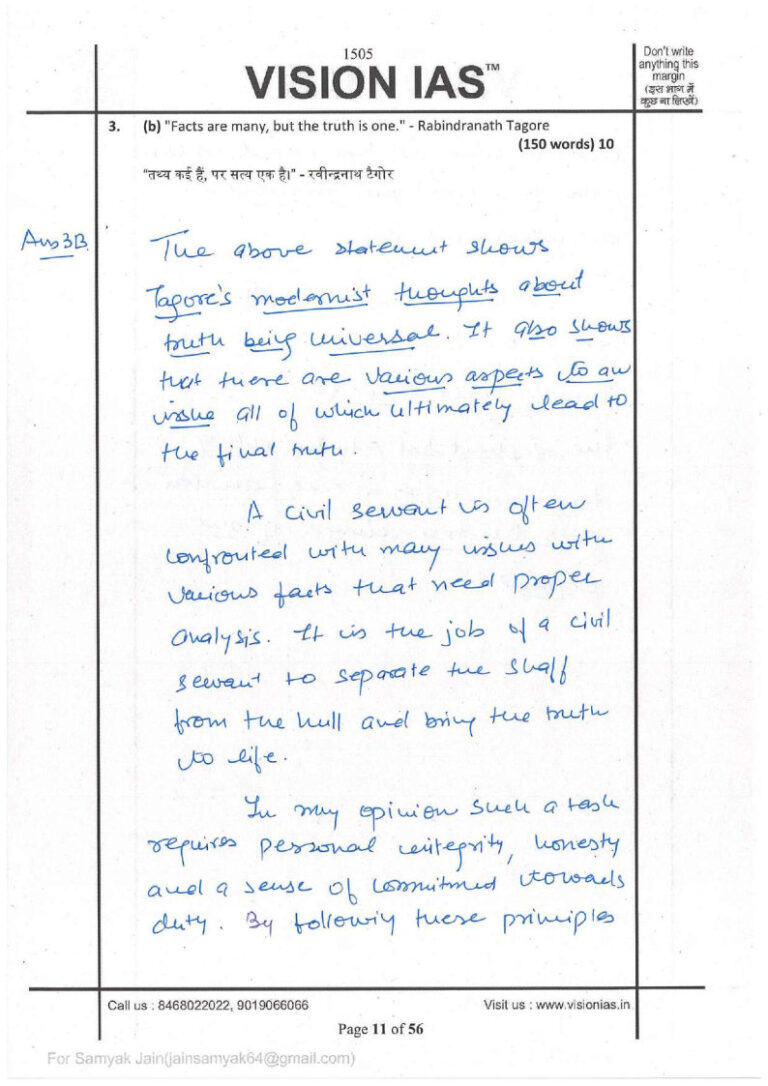 1505
VISION IAS™
Don't write
anything this
margin
(इस भाग में
कुछ ना लिखें)
3. (b) "Facts are many, but the truth is one." - Rabindranath Tagore
(150 words) 10
"तथ्य कई हैं, पर सत्य एक है।" - रवीन्द्रनाथ टैगोर
Ans 3B
The above statement shows
Tagore's modernist thoughts about
truth being universal. It also shows
that there are various aspects to an
issue all of which ultimately lead to
the final truth.
A civil servant is often
confronted with many issues with
various facts that need proper
analysis. It is the job of a civil
servant to separate the shaff
from the hull and bring the truth
to life.
In my opinion such a task
requires personal integrity, honesty
and a sense of commitmed towards
duty. By following these principles
Call us : 8468022022, 9019066066
Visit us : www.visionias.in
Page 11 of 56
For Samyak Jain(jainsamyak64@gmail.com)